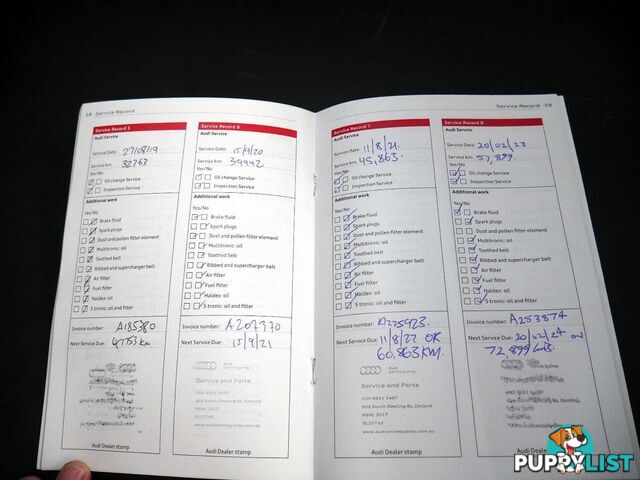 18 Service Record
Service Record 5
Audi Service
Service Date: 27/08/19
Service km: 32763
Yes/No
Oil change Service
Inspection Service
Additional work
Yes/No
Brake fluid
Spark plugs
Dust and pollen filter element
Multitronic: oil
Toothed belt
Ribbed and supercharger belt
Air filter
Fuel filter
Haldex: oil
S tronic: oil and filter
Invoice number: A185380
Next Service Due: 47763 km
Audi Dealer stamp
Service Record 6
Audi Service
Service Date: 15/9/20
Service km: 39942
Yes/No
Oil change Service
Inspection Service
Additional work
Yes/No
Brake fluid
Spark plugs
Dust and pollen filter element
Multitronic: oil
Toothed belt
Ribbed and supercharger belt
Air filter
Fuel filter
Haldex: oil
S tronic: oil and filter
Invoice number: A207370
Next Service Due: 15/9/21
Audi
Service and Parts
NSW, 2017
Audi Dealer stamp
Service Record 19
Service Record 7
Audi Service
Service Date: 11/8/21.
Service km: 45,863.
Yes/No
Oil change Service
Inspection Service
Additional work
Yes/No
Brake fluid
Spark plugs
Dust and pollen filter element
Multitronic: oil
Toothed belt
Ribbed and supercharger belt
Air filter
Fuel filter
Haldex: oil
S tronic: oil and filter
Invoice number: A225923.
Next Service Due: 11/8/22 OR
60,863 KM.
Audi
Service and Parts
NSW, 2017
Audi Dealer stamp
Service Record 8
Audi Service
Service Date: 20/02/23
Service km: 57,899.
Yes/No
Oil change Service
Inspection Service
Additional work
Yes/No
Brake fluid
Spark plugs
Dust and pollen filter element
Multitronic: oil
Toothed belt
Ribbed and supercharger belt
Air filter
Fuel filter
Haldex: oil
S tronic: oil and filter
Invoice number: A253874
Next Service Due: 20/02/24 or
72,899 kms.
Audi Dealer stamp
PUPPYLIST